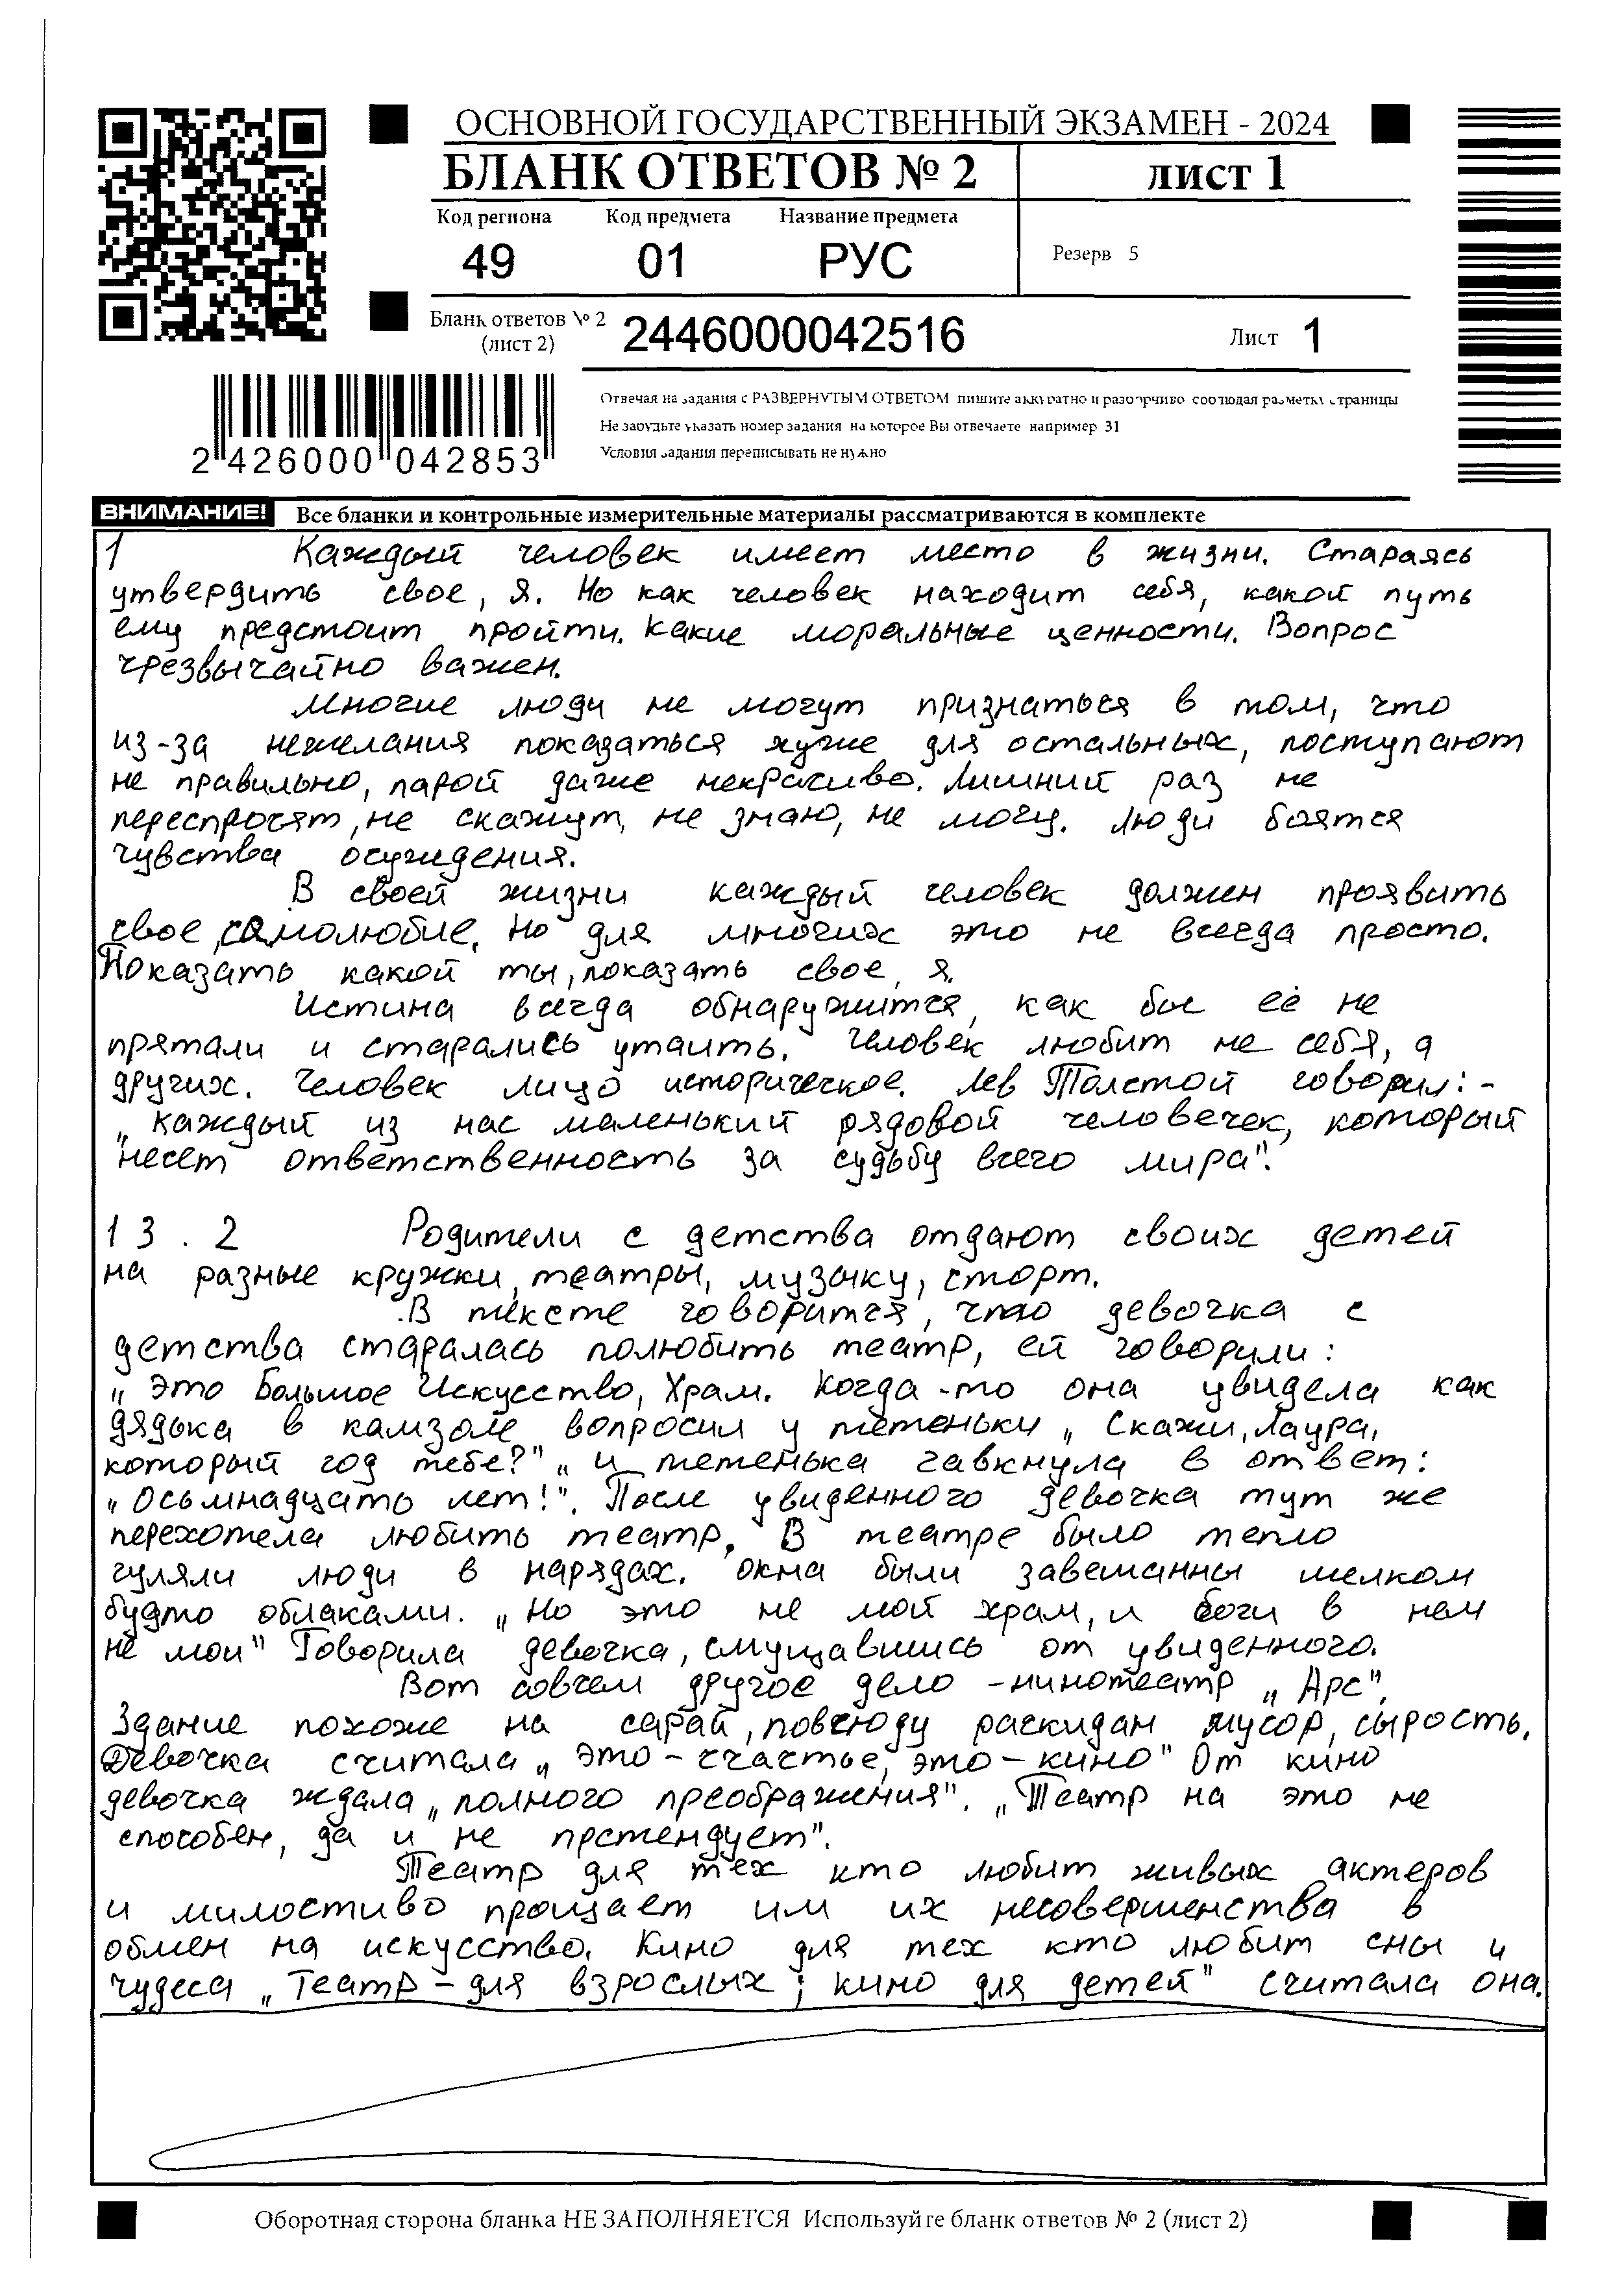 ОСНОВНОЙ ГОСУДАРСТВЕННЫЙ ЭКЗАМЕН - 2024
БЛАНК ОТВЕТОВ № 2
лист 1
Код региона Код предмета Название предмета
49 01 РУС
Резерв 5
Бланк ответов № 2
(лист 2)
2446000042516
Лист 1
2 426000 042853
Отвечая на задания с РАЗВЕРНУТЫМ ОТВЕТОМ пишите аккуратно и разборчиво соблюдая разметку страницы
Не забудьте указать номер задания на которое Вы отвечаете например 31
Условия задания переписывать не нужно
ВНИМАНИЕ! Все бланки и контрольные измерительные материалы рассматриваются в комплекте
1 Каждый человек имеет место в жизни. Стараясь
утвердить свое, я. Но как человек находит себя, какой путь
ему предстоит пройти. Какие моральные ценности. Вопрос
чрезвычайно важен.
Многие люди не могут признаться в том, что
из-за нежелания показаться хуже для остальных, поступают
не правильно, парой даже некрасиво. Лишний раз не
переспросят, не скажут, не знаю, не могу. Люди боятся
чувства осуждения.
В своей жизни каждый человек должен проявить
свое, самолюбие. Но для многих это не всегда просто.
Показать какой ты, показать свое, я.
Истина всегда обнаружится, как бы её не
прятали и старались утаить. Человек любит не себя, а
других. Человек лицо историческое. Лев Толстой говорил: -
„Каждый из нас маленький рядовой человечек, который
несет ответственность за судьбу всего мира".
13.2 Родители с детства отдают своих детей
на разные кружки, театры, музыку, спорт.
В тексте говорится, что девочка с
детства старалась полюбить театр, ей говорили:
„Это Большое Искусство, Храм. Когда-то она увидела как
дядька в камзоле вопросил у тетеньки „Скажи, Лаура,
который год тебе?" „и тетенька гавкнула в ответ:
„Осьмнадцать лет!". После увиденного девочка тут же
перехотела любить театр. В театре было тепло
гуляли люди в нарядах. окна были завешанны шелком
будто облаками. „Но это не мой храм, и боги в нем
не мои" Говорила девочка, смущавшись от увиденного.
Вот совсем другое дело - кинотеатр „Арс".
Здание похоже на сарай, повсюду раскидан мусор, сырость.
Девочка считала „это - счастье, это - кино" От кино
девочка ждала „полного преображения". „Театр на это не
способен, да и не претендует".
Театр для тех кто любит живых актеров
и милостиво прощает им их несовершенства в
обмен на искусство. Кино для тех кто любит сны и
чудеса „Театр - для взрослых; кино для детей" считала она.
Оборотная сторона бланка НЕ ЗАПОЛНЯЕТСЯ Используйте бланк ответов № 2 (лист 2)